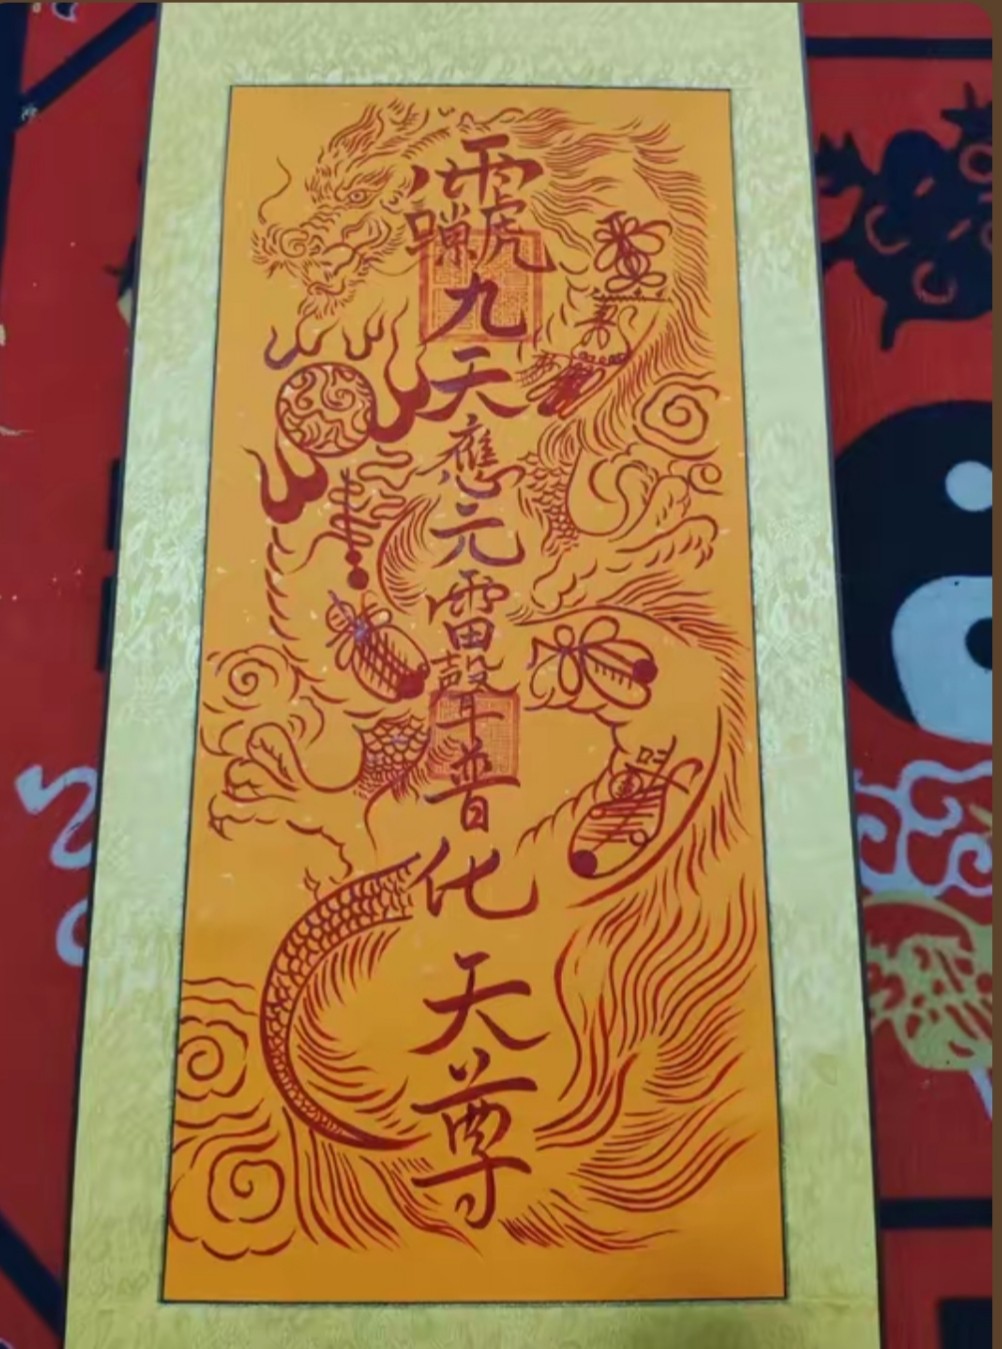 九天應元雷聲普化天尊